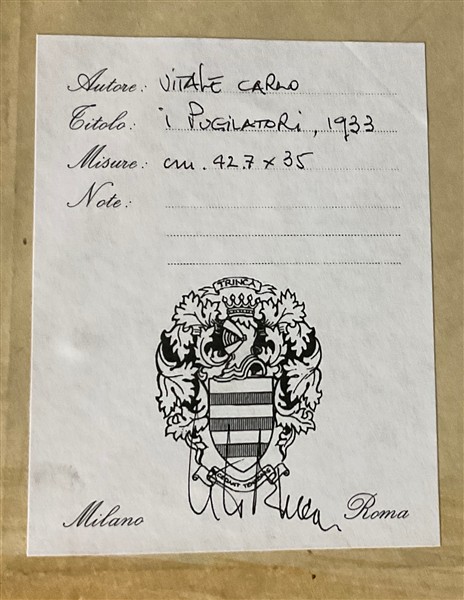 Autore: VITALE CARLO
Titolo: i PUGILATORI, 1933
Misure: cm. 42.7 x 35
Note:
TRINCA
Milano
Roma